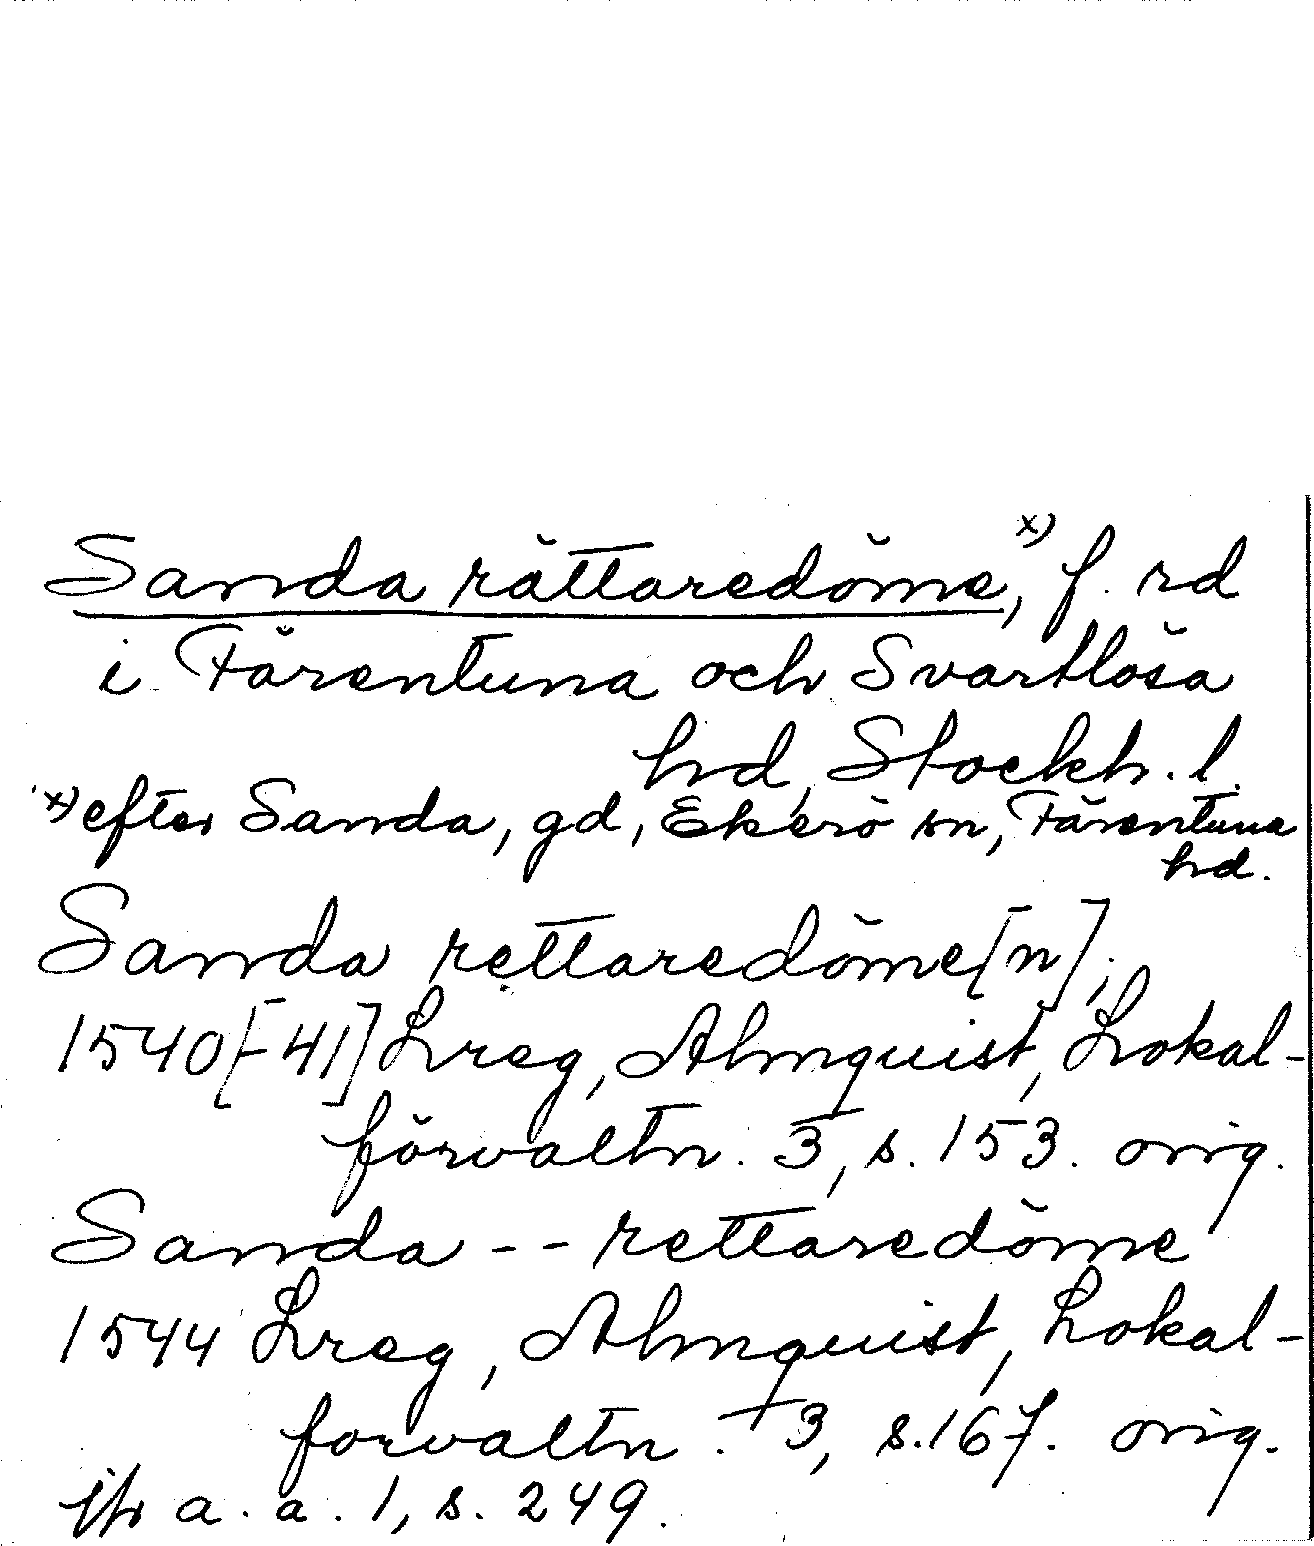 Sanda rättaredöme, x) f. rd
i Färentuna och Svartlösa
hd, Stockh. l.
x) efter Sanda, gd, Ekerö sn, Färentuna
hd.
Sanda rettaredöme[n],
1540[-41] Lreg, Almquist, Lokal-
förvaltn. 3, s. 153. orig.
Sanda -- rettaredöme
1544 Lreg, Almquist, Lokal-
forvaltn. 3, s. 167. orig.
jfr a. a. 1, s. 249.